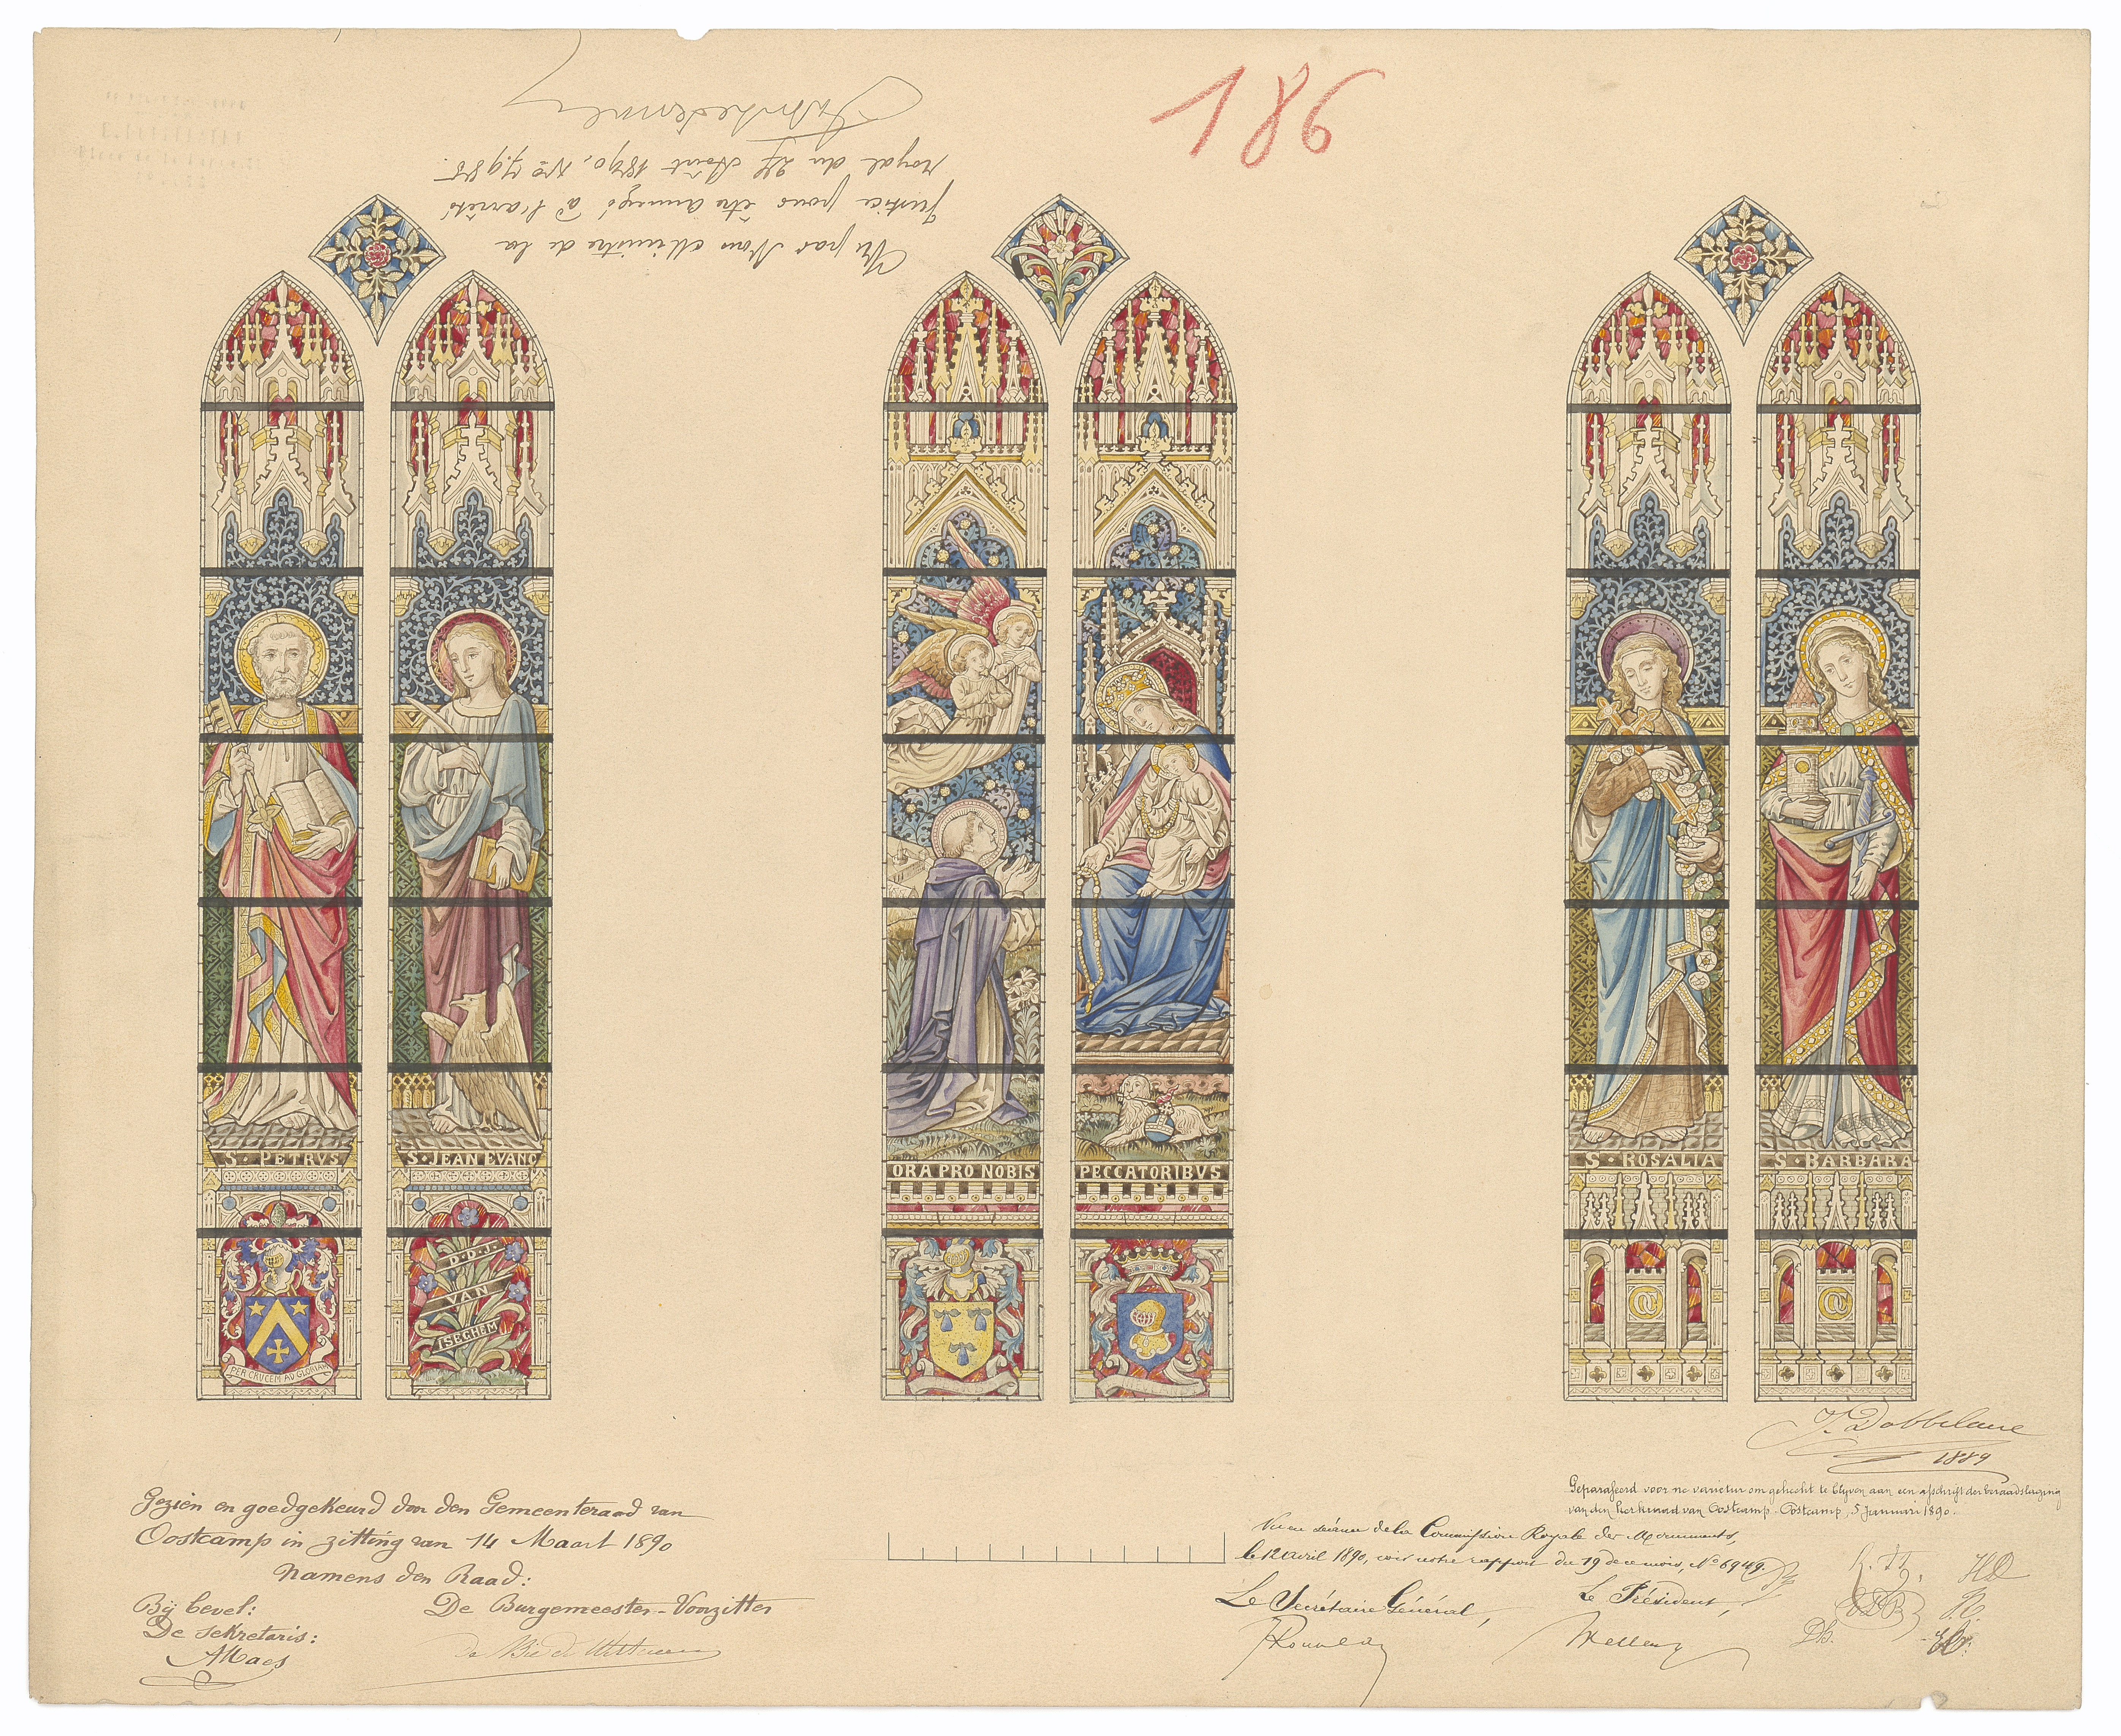 186
Vu par Nous Ministre de la
Justice pour être annexé à l'arrêté
royal du 27 Août 1890, No 7985.
S · PETRVS
S · JEAN EVANG
ORA PRO NOBIS
PECCATORIBVS
S · ROSALIA
S · BARBARA
PER CRUCEM AD GLORIAM
D·D·J·
VAN
ISEGHEM
J. Dobbelaere
1889
Geparafeerd voor ne varietur om gehecht te blyven aan een afschrift der beraadslaging
van den kerkraad van Oostcamp. Oostcamp, 5 Januari 1890.
Gezien en goedgekeurd door den Gemeenteraad van
Oostcamp in zitting van 14 Maart 1890
Namens den Raad:
Bij bevel:
De Burgemeester-Voorzitter
De Sekretaris:
AMaes
Vu en séance de la Commission Royale des Monuments,
le 12 avril 1890, voir notre rapport du 19 de ce mois, No 6949.
Le Secrétaire Général,
Le Président,